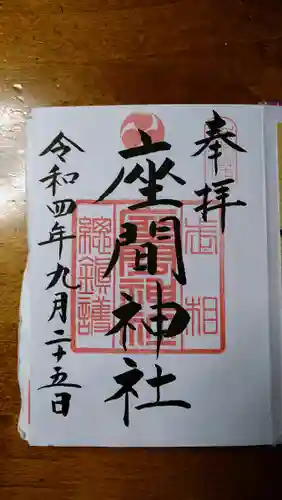 奉拝
座間神社
令和四年九月二十五日
相武
総鎮護
座間神社